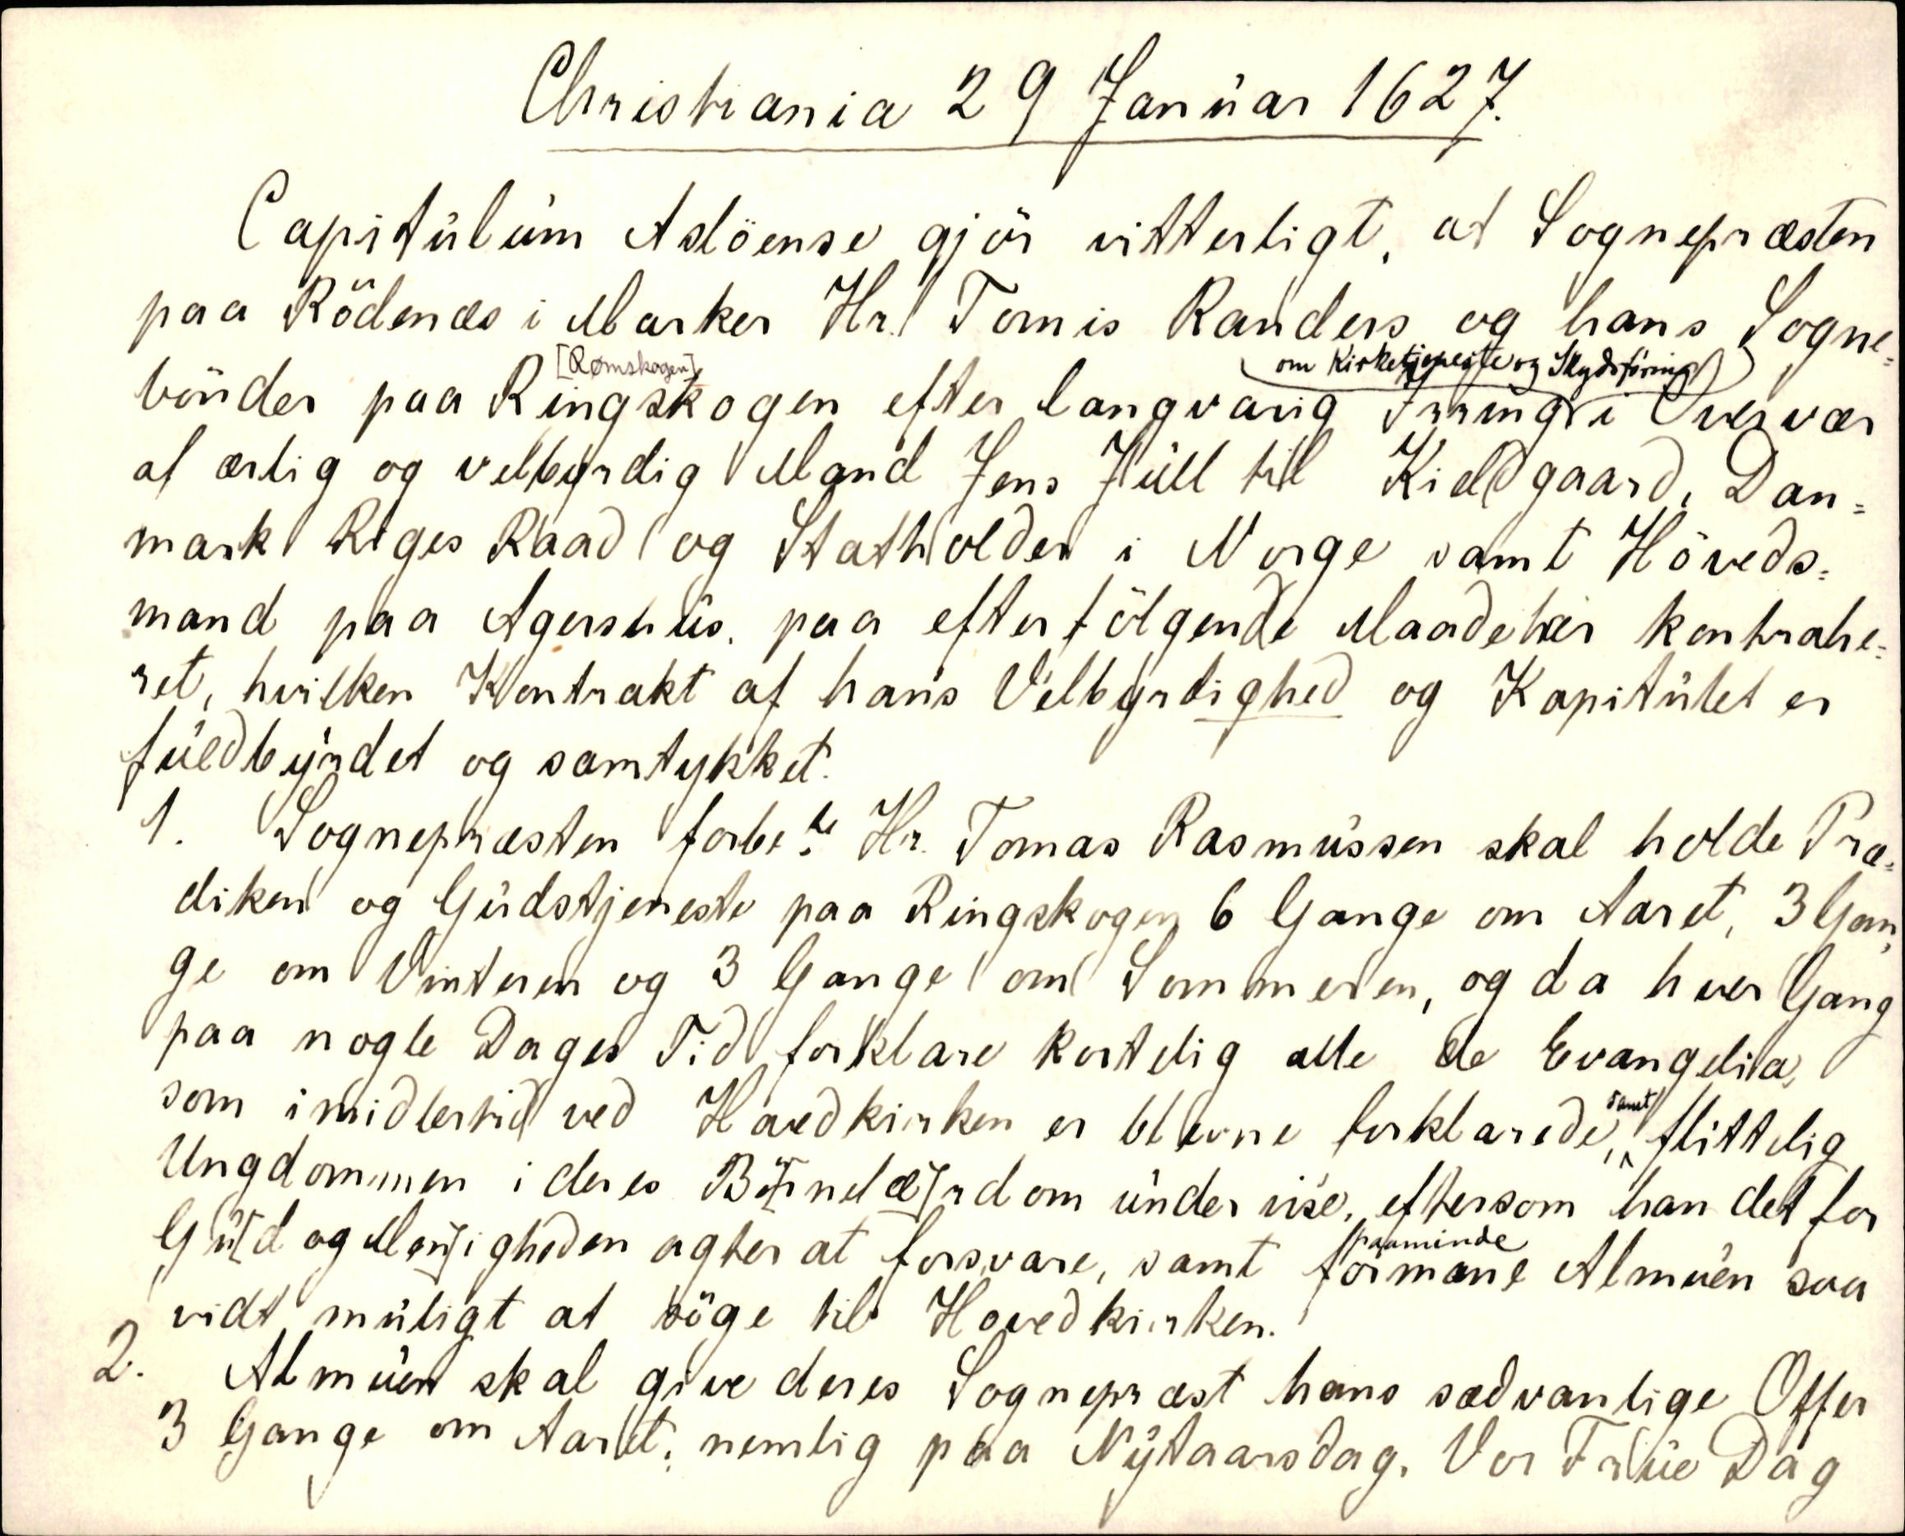 Christiania 29 Januar 1627.
Capitulum Asloense gjör vitterligt, at Sognepræsten
paa Rödenæs i Marker Hr. Tomis Randers og hans Sogne=
[Rømskogen] om Kirketjeneste og Skydsföring
bönder paa Ringskogen efter langvarig Irring i Overvær
af ærlig og velbyrdig Mand Jens Jull til Kieldgaard, Dan=
mark Riges Raad og Statholder i Norge samt Höveds=
mand paa Agershus. paa efterfölgende Maade her kontrahe=
ret, hvilken Kontrakt af hans Velbyrdighed og Kapitulet er
fuldbyrdet og samtykket.
1. Sognepræsten forbe.te Hr. Tomas Rasmussen skal holde Præ=
diken og Gudstjeneste paa Ringskogen 6 Gange om Aaret, 3 Gan=
ge om Vinteren og 3 Gange om Sommeren, og da hver Gang
paa nogle Dages Tid forklare kortelig alle de Evangelia,
som imidlertid ved Hovedkirken er blevne forklarede, samt flittelig
Ungdommen i deres Bö[r]nelæ[r]dom undervise, eftersom han det for
Gu[d og Men]igheden agter at forsvare, samt formane paaminde Almuen saa
vidt muligt at söge til Hovedkirken.
2. Almuen skal give deres Sognepræst hans sædvanlige Offer
3 Gange om Aaret, nemlig paa Nytaarsdag, Vor Frue Dag